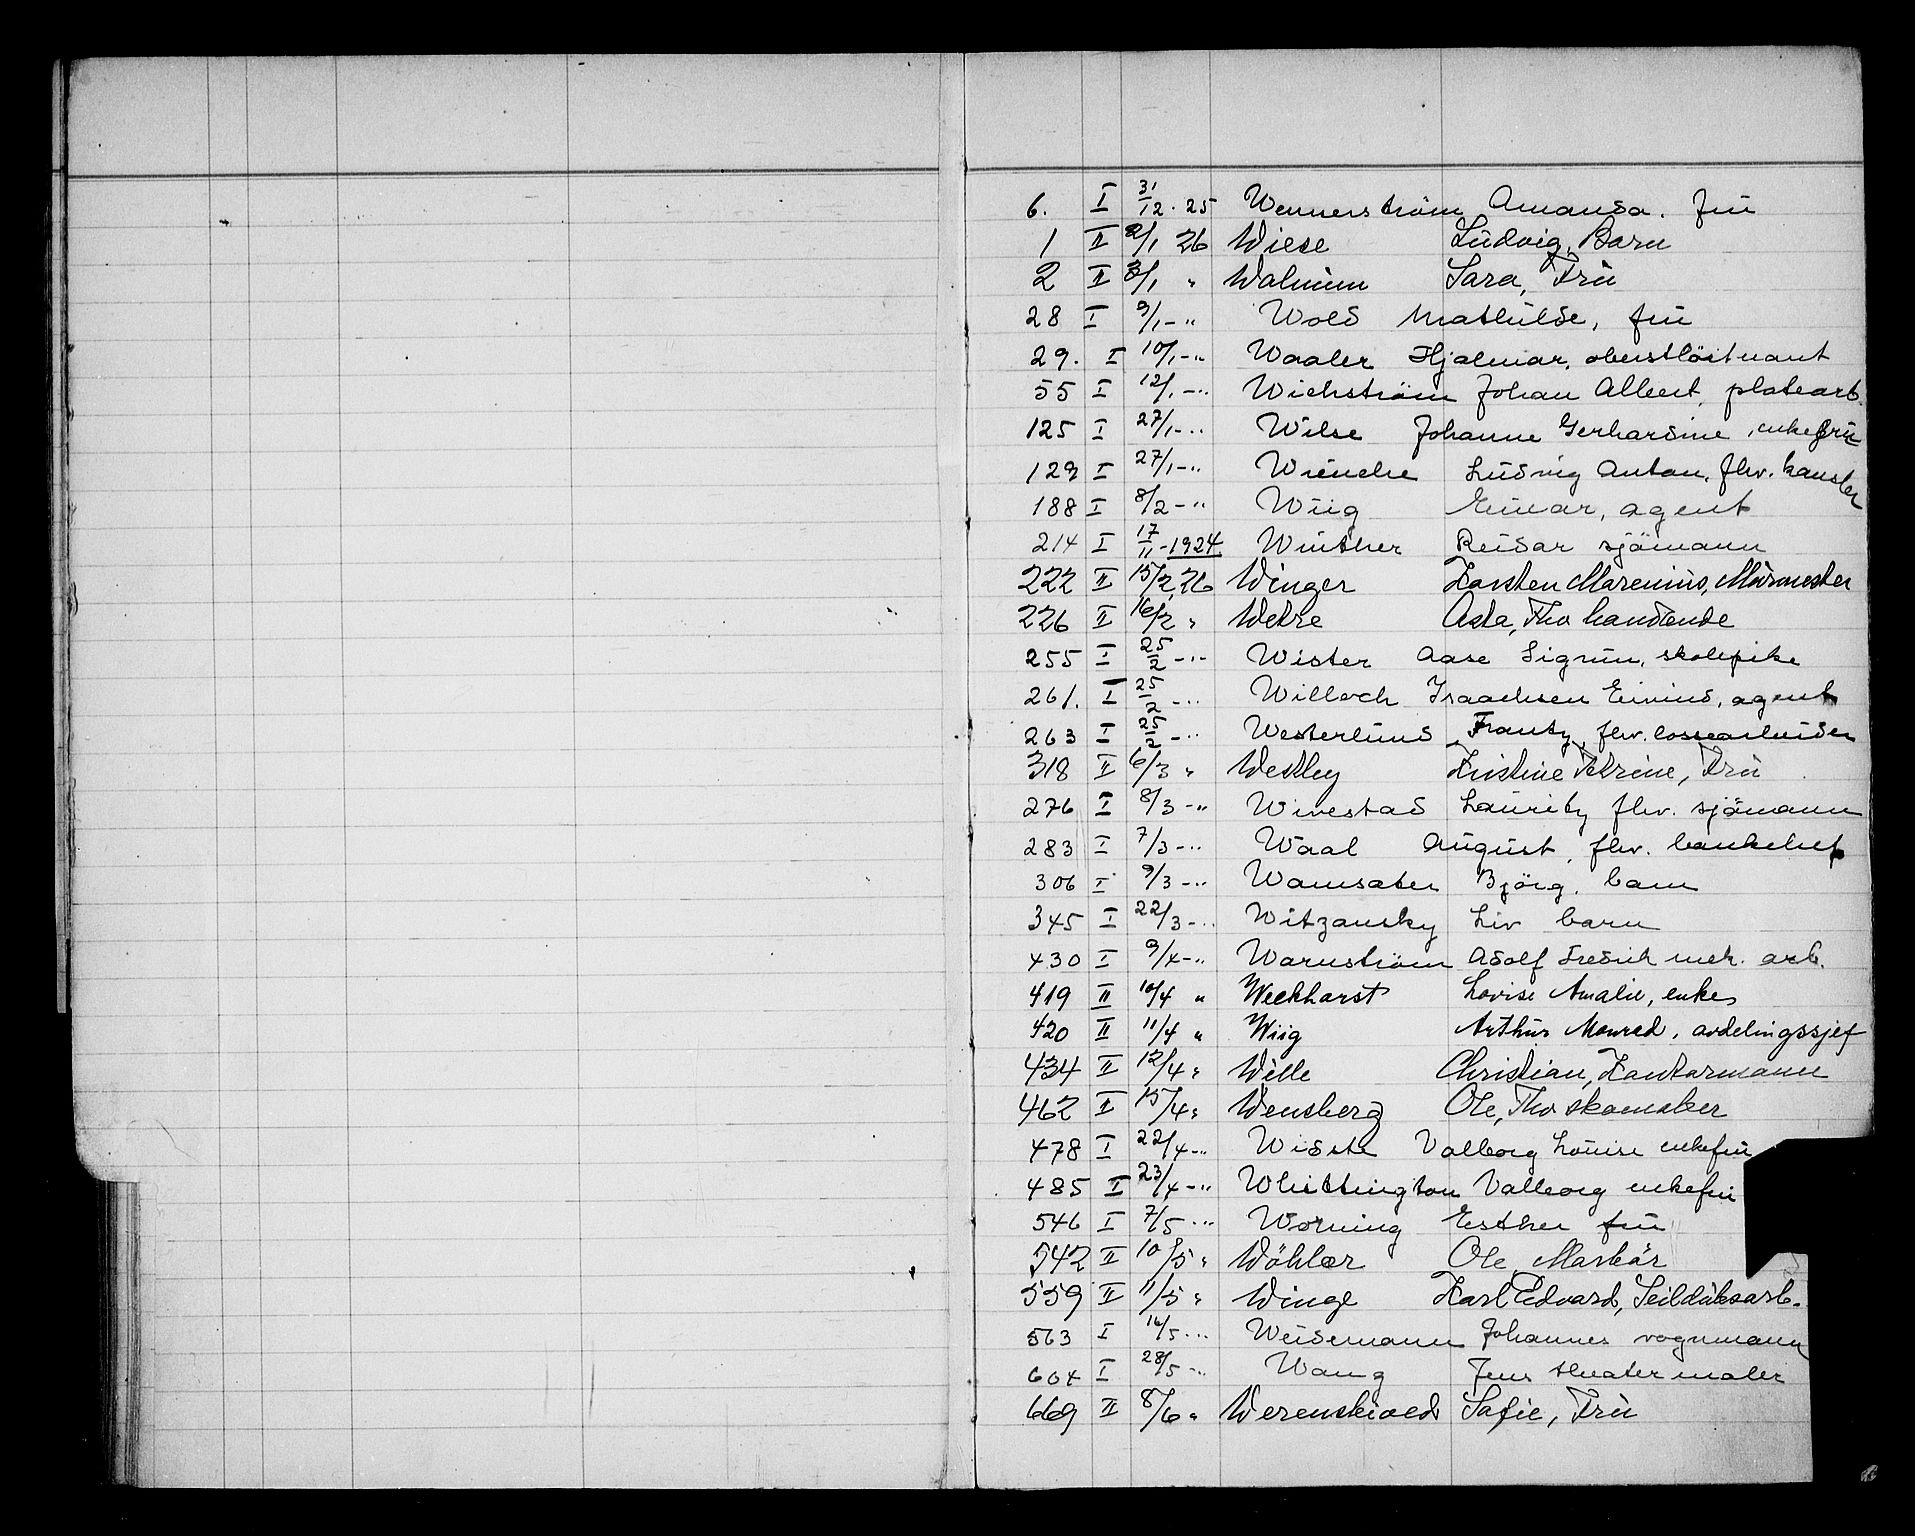 6. I 31/12. 25 Wennerström Amanda. frü
1 II 2/1 26 Wiese Ludvig, Barn
2 II 3/1 " Walnum Sara, Frü
28 I 9/1 - " Wold Mathilde, frü
29. I 10/1 - " Waaler Hjalmar, oberstlöitnant
55 I 12/1 - " Wickström Johan Albert, platearb.
125 I 27/1 - " Wilse Johanne Gerhardine, enkefrü
129 I 27/1 - " Ludvig Anton, fhv.
188 I 8/2 - " Wiig Einar, agent
214 I 17/11 - 1924 Winther Reidar sjömann
222 II 15/2 26 Winger Karsten Marenius, Mürmester
226 II 16/2 " Wetre Asta, Fhv
255 I 25/2 - " Wister Aase Sigrun, skolepike
261. I 25/2 - " Willoch Isaachsen agent
263 I 25/2 - " Westerlund Frantz, fhv. lossearbeider
318 II 6/3 " Westley Kristine Petrine, Frü
276 I 8/3 - " Wivestad Lauritz fhv. sjömann
283 I 7/3 - " Waal August, fhv. bankchef
306 I 9/3 - " Wamsater Björg. barn
345 I 22/3 - " Witzansky Liv barn
430 I 9/4 - " Warnström Adolf Fredrik mek. arb.
419 II 10/4 " Weckhorst Lovise Amalie, enke
420 II 11/4 " Wiig Arthur Monrad, avdelingssjef
434 II 12/4 " Wille Christian, Kontormann
462 II 15/4 " Wensberg Ole, Fhv skomaker
478 I 22/4 - " Wiste Valborg Louise enkefrü
485 I 23/4 - " Whittington Valborg enkefrü
546 I 7/5 - " Worning Esther frü
542 II 10/5 " Wöhler Ole, Markör
559 II 11/5 " Winge Karl Edvard, Seilduksarb.
563 I 16/5 - " Weidemann Johannes vognmann
604 I 28/5 - " Wang Jens theatermaler
669 II 8/6 " Werenskiold Sofie, Frü